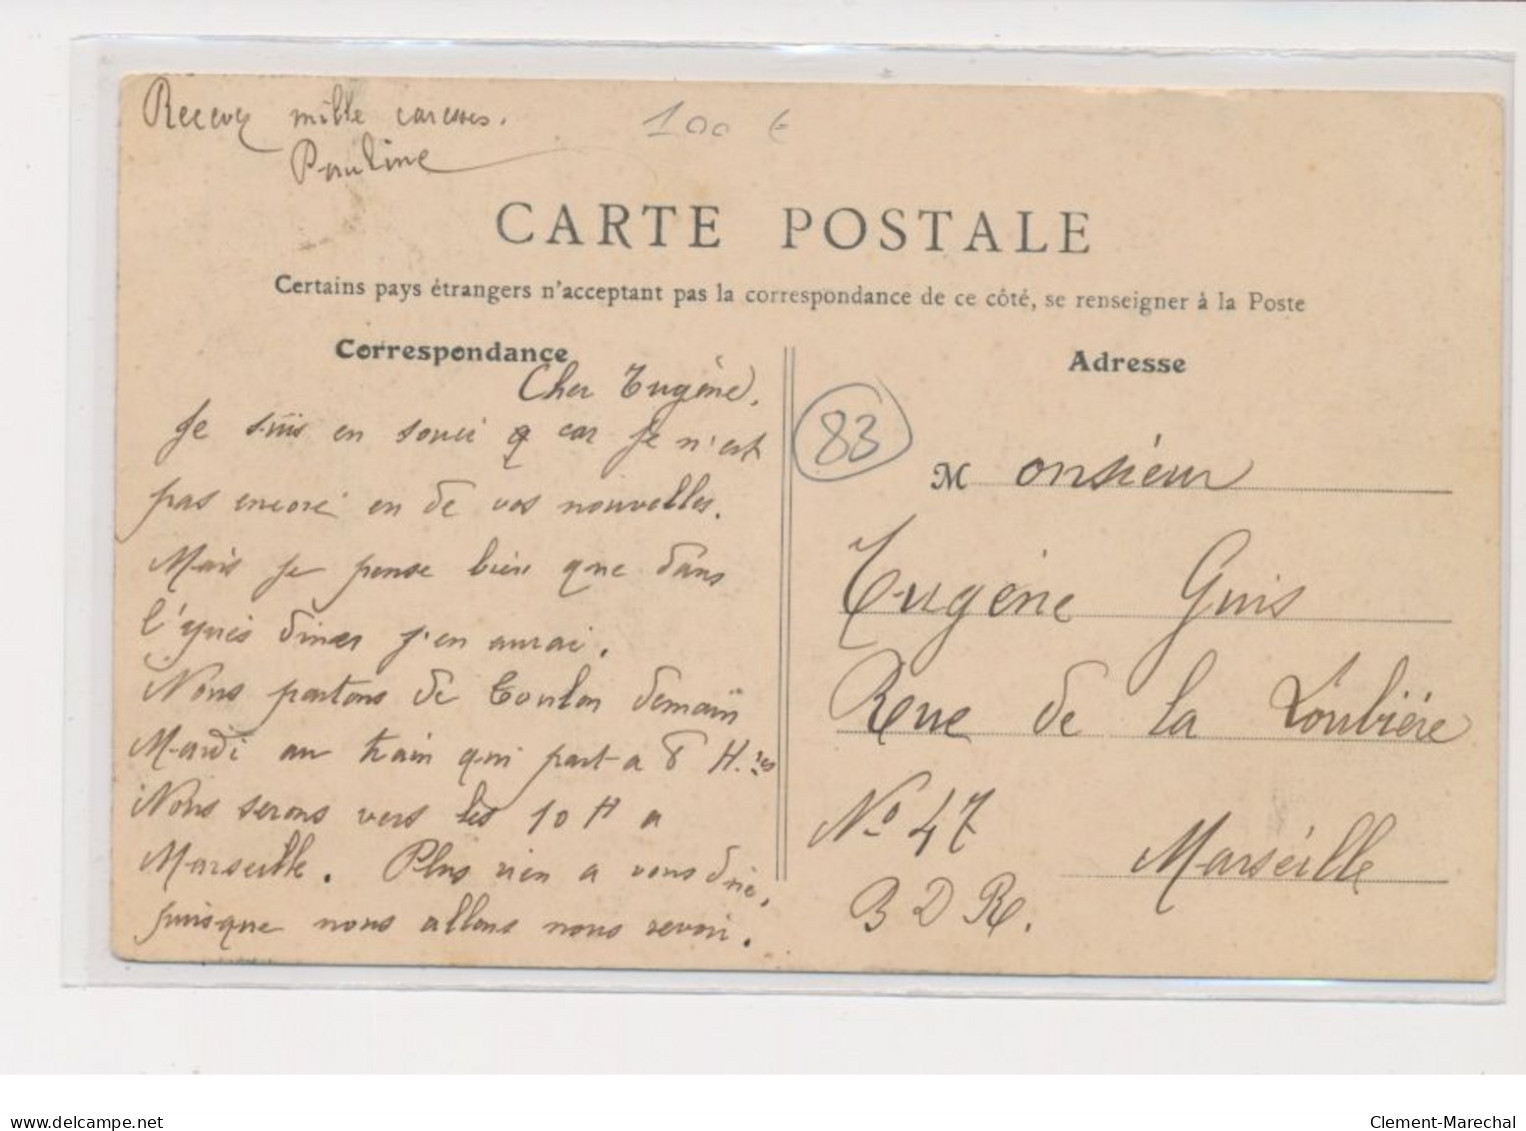 Recevez mille caresses.
Pauline
100 €
CARTE POSTALE
Certains pays étrangers n'acceptant pas la correspondance de ce côté, se renseigner à la Poste
Correspondance
Cher Eugène,
Je suis en souci car je n'est
pas encore en de vos nouvelles.
Mais je pense bien que dans
diner j'en aurai.
Nous partons de Toulon demain
Mardi au train qui part a 8 H.res
Nous serons vers les 10 H a
Marseille. Plus rien a vous dire,
puisque nous allons nous revoir.
83
Adresse
Monsieur
Eugène Guis
Rue de la Loubière
No 47
Marseille
B D R.
delcampe.net
Clement-Marechal